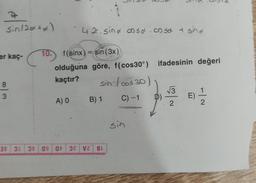 sin(2α+α)
4 2. sinα cosα . cosα + sinα
er kaç-
10. f(sinx) = sin(3x)
olduğuna göre, f(cos30°) ifadesinin değeri
kaçtır?
sin(cos30)
8
3
A) 0 B) 1 C) -1 D) √3/2 E) 1/2
sin